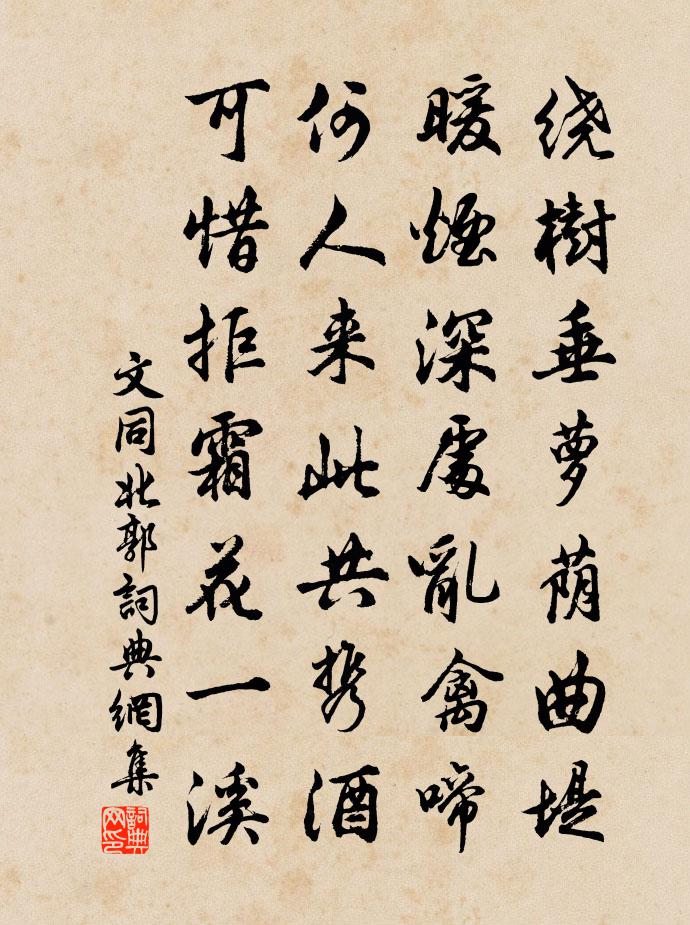 绕樹垂萝荫曲堤
暖煙深處亂禽啼
何人来此共携酒
可惜拒霜花一溪
文同北郭詞典網集
詞典网印